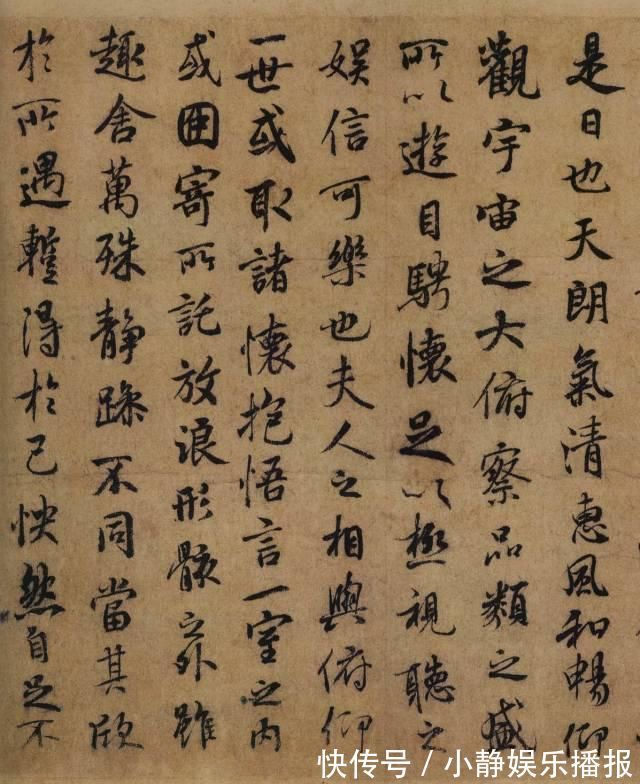 是日也天朗氣清惠風和暢仰
觀宇宙之大俯察品類之盛
所以遊目騁懷足以極視聽之
娛信可樂也夫人之相與俯仰
一世或取諸懷抱悟言一室之內
或因寄所託放浪形骸之外雖
趣舍萬殊靜躁不同當其欣
於所遇暫得於己怏然自足不
快传号/小静娱乐播报